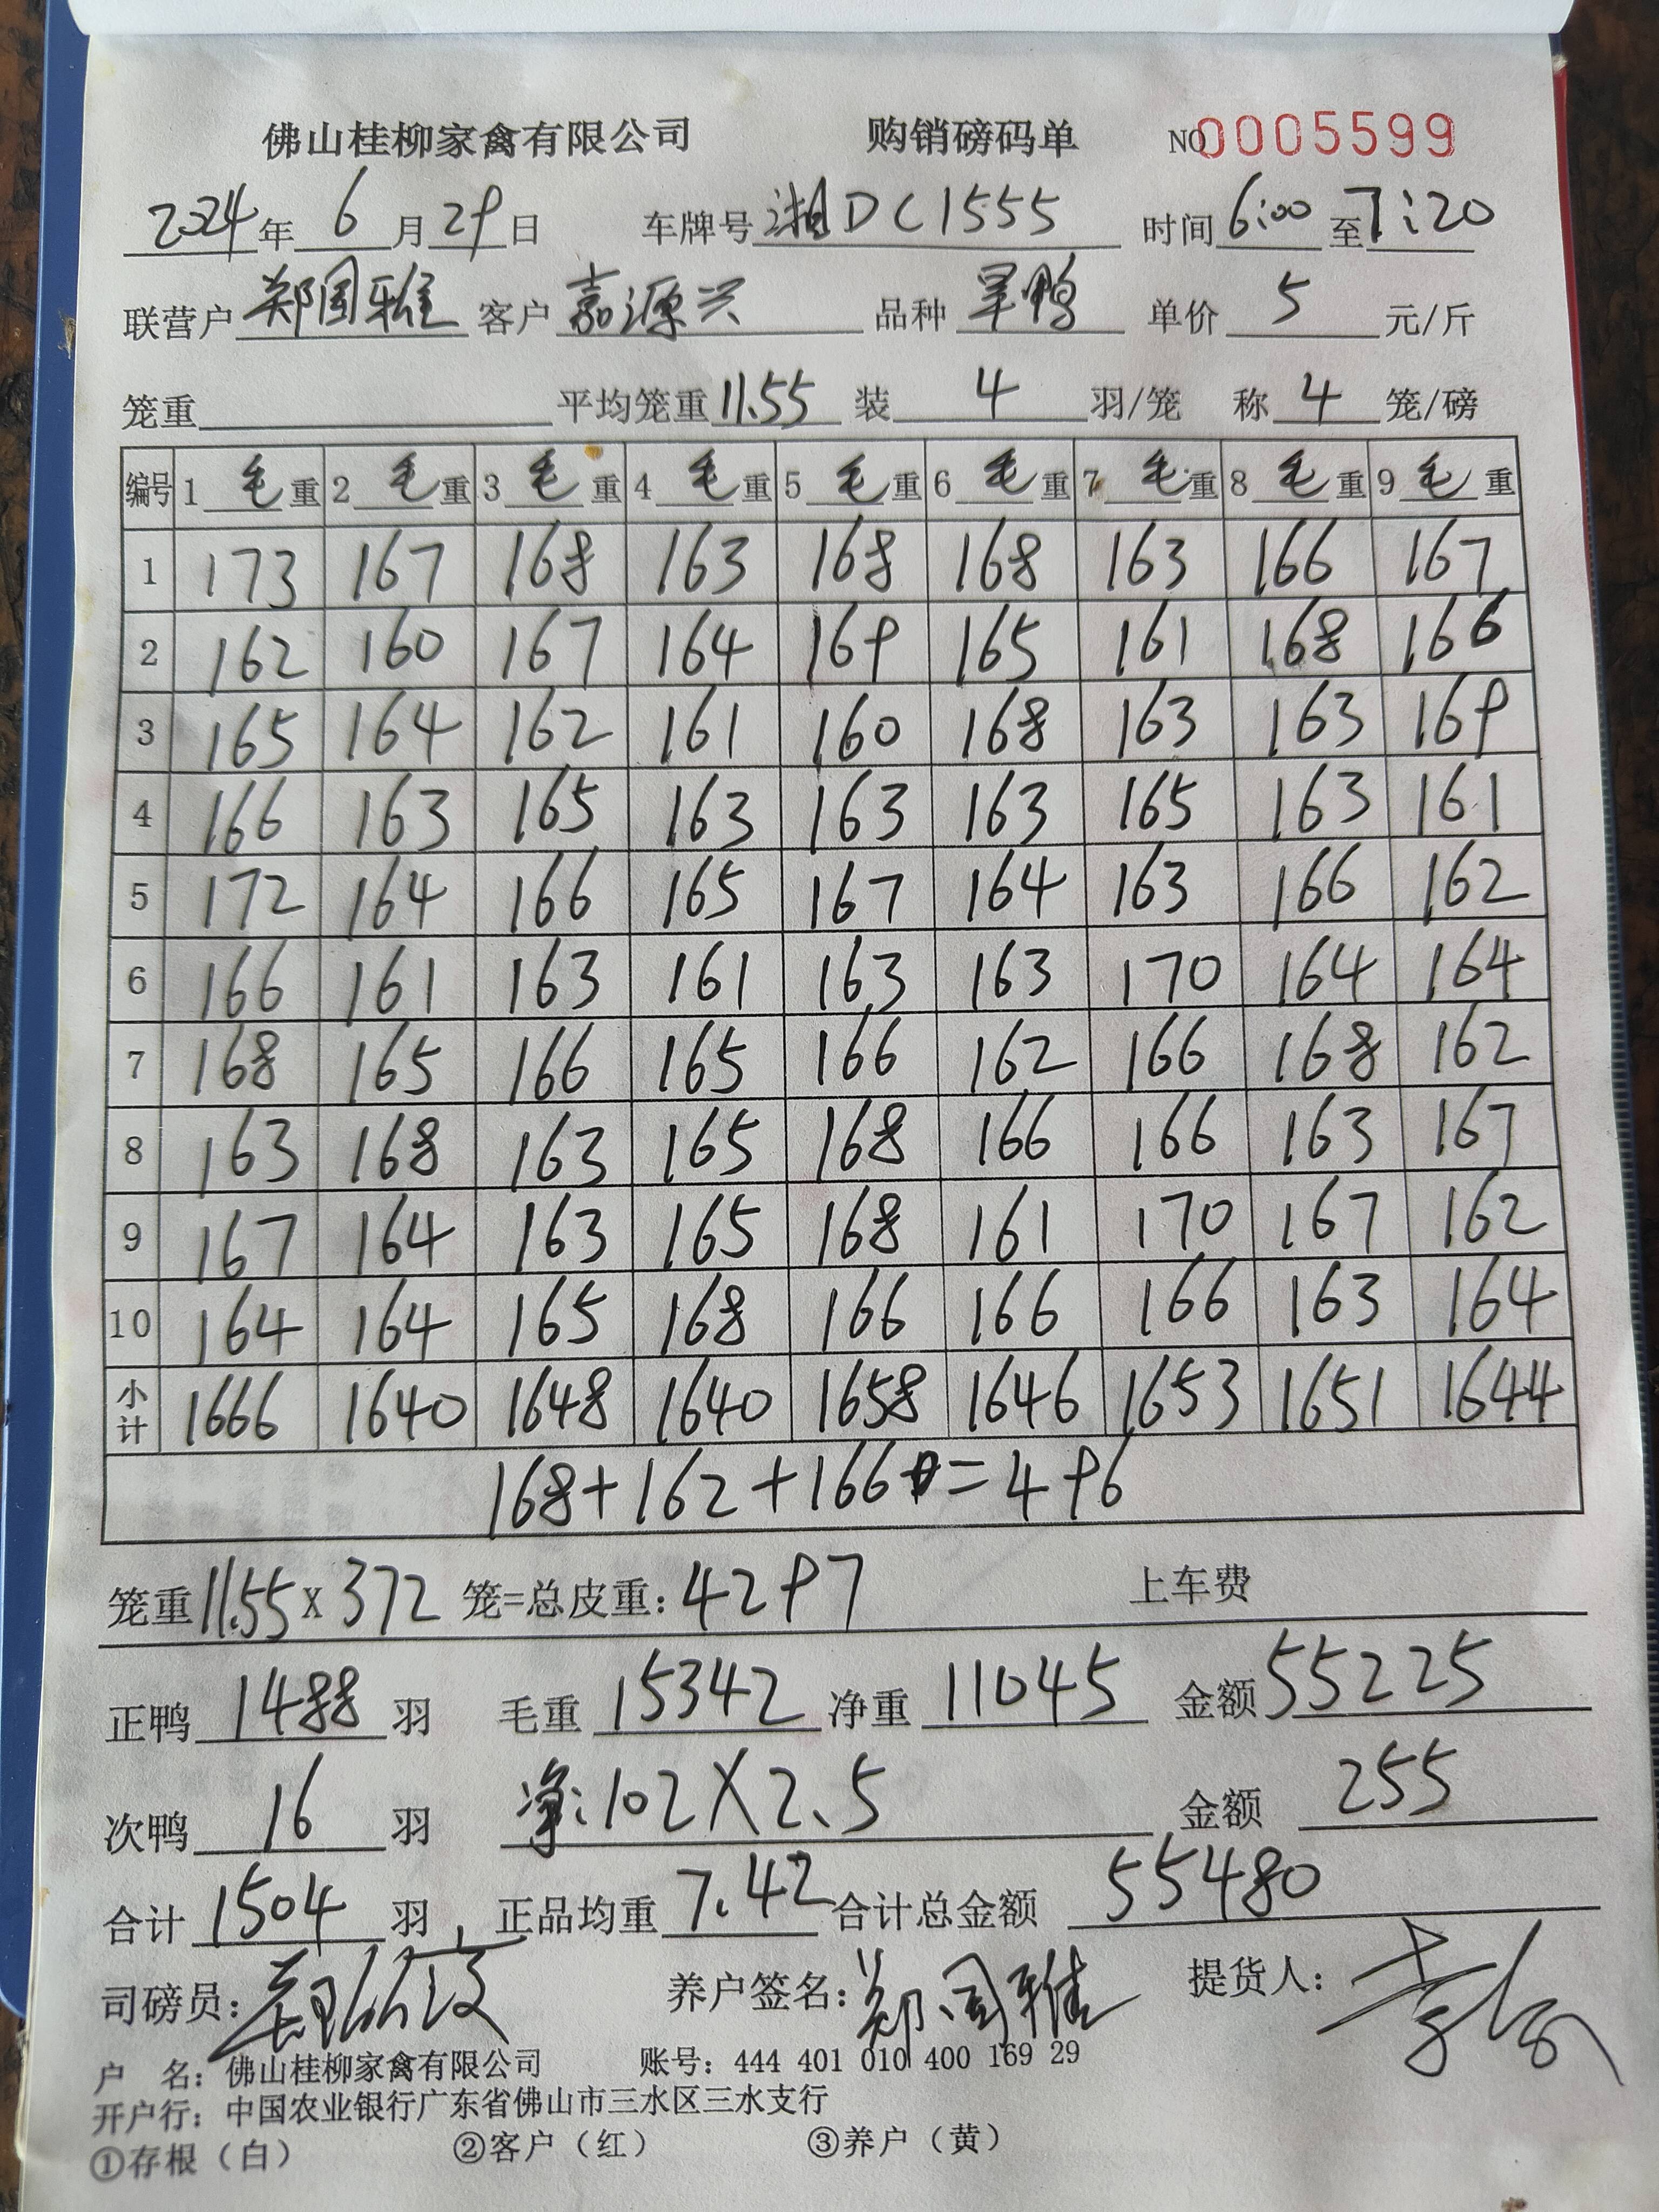 佛山桂柳家禽有限公司 购销磅码单 NO 0005599
2024年 6 月 29 日 车牌号 湘DC1555 时间 6:00 至 7:20
联营户 郑国雅 客户 嘉源兴 品种 旱鸭 单价 5 元/斤
笼重 平均笼重 11.55 装 4 羽/笼 称 4 笼/磅
编号 1 毛重 2 毛重 3 毛重 4 毛重 5 毛重 6 毛重 7 毛重 8 毛重 9 毛重
1 173 167 168 163 168 168 163 166 167
2 162 160 167 164 169 165 161 168 166
3 165 164 162 161 160 168 163 163 169
4 166 163 165 163 163 163 165 163 161
5 172 164 166 165 167 164 163 166 162
6 166 161 163 161 163 163 170 164 164
7 168 165 166 165 166 162 166 168 162
8 163 168 163 165 168 166 166 163 167
9 167 164 163 165 168 161 170 167 162
10 164 164 165 168 166 166 166 163 164
小计 1666 1640 1648 1640 1658 1646 1653 1651 1644
168+162+166=496
笼重 11.55 X 372 笼=总皮重: 4297 上车费
正鸭 1488 羽 毛重 15342 净重 11045 金额 55225
次鸭 16 羽 净:102X2.5 金额 255
合计 1504 羽 正品均重 7.42 合计总金额 55480
司磅员: 养户签名: 郑国雅 提货人:
户 名: 佛山桂柳家禽有限公司 账号: 444 401 010 400 169 29
开户行: 中国农业银行广东省佛山市三水区三水支行
①存根(白) ②客户(红) ③养户(黄)